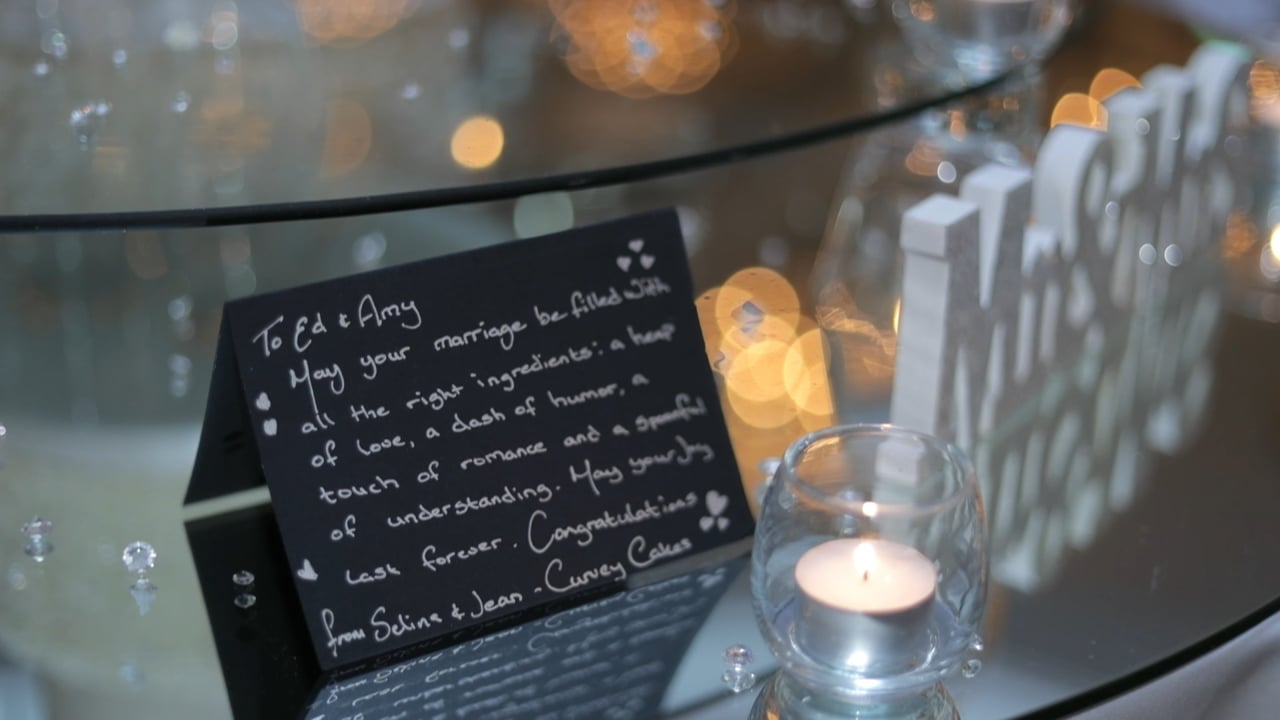 To Ed & Amy
May your marriage be filled with
all the right ingredients: a heap
of love, a dash of humor, a
touch of romance and a spoonful
of understanding. May your Joy
last forever. Congratulations
from Selina & Jean - Curvey Cakes
Mr & Mrs